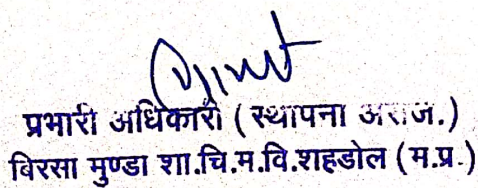 प्रभारी अधिकारी ( स्थापना अराज.)
बिरसा मुण्डा शा.चि.म.वि.शहडोल (म.प्र.)